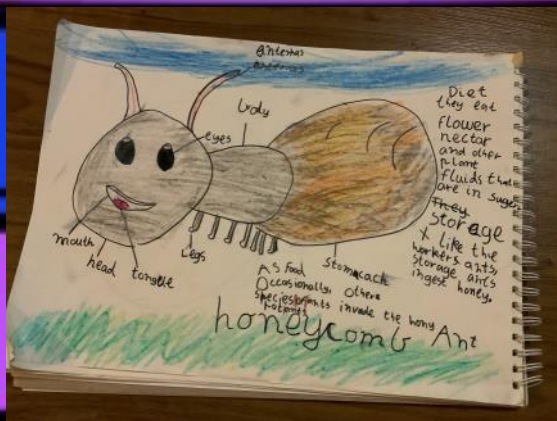 antenas
eyes
body
mouth
head
tongue
Legs
Stomacach
Diet
they eat
flower
nectar
and other
plant
fluids that
are in suger
They
Storage
X like the
workers ants,
storage ants
ingest honey.
As food
Occasionally, others
species of ants invade the hony
honeycomb Ant